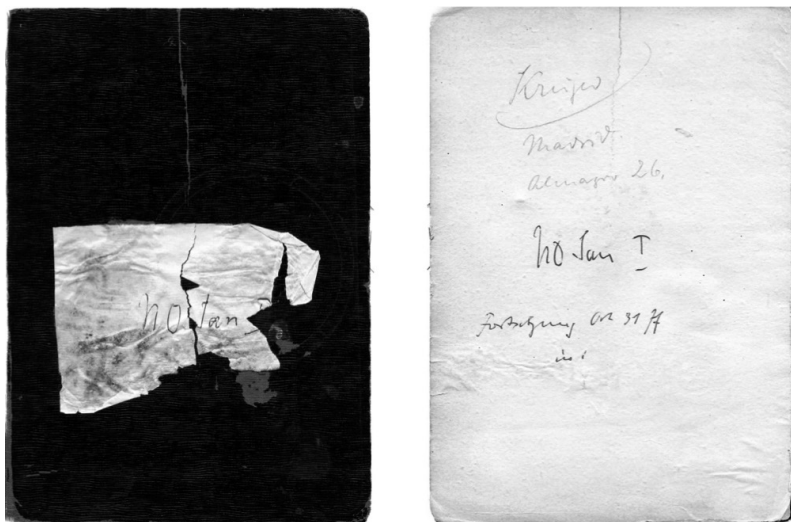 NO San I
Krüger
Madrid.
Almagro 26.
NO San I
Fortsetzung Okt 31 ff
in: